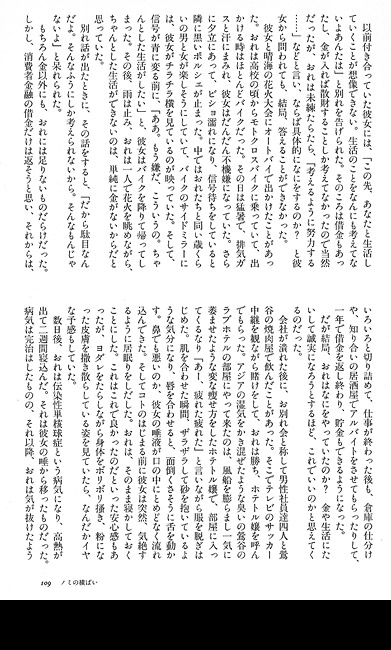 以前付き合っていた彼女には、「この先、あなたと生活し
ていくことが想像できない。生活のことをなんにも考えてな
いよあんたは」と別れを告げられた。そのころは借金もあっ
たし、金が入れば散財することしか考えてなかったので当然
だったが、おれは未練たらたら、「考えるように努力する
……」などと言い、ならば具体的になにをするのか？　と彼
女から問われても、結局、答えることができなかった。
彼女と晴海の花火大会にオートバイで出かけたことがあっ
た。おれは高校の頃からモトクロスバイクに乗っていて、出
かける時はほとんどバイクだった。その日は猛暑で、排気ガ
スと汗にまみれ、彼女はだんだん不機嫌になっていた。さら
に夕立にあって、ビショ濡れになり、信号待ちをしていると
隣に黒いポルシェが止まった。中ではおれたちと同い歳くら
いの男と女が楽しそうにしていて、バイクのサイドミラーに
は、彼女がチラチラ横を見ているのが映っていた。そして、
信号が青に変る前に、「ああ。もう嫌だ。こういうの。ちゃ
んとした生活がしたい」と、彼女はバイクを降りて帰ってし
まった。その後、雨は止み、おれは一人で花火を眺めながら、
ちゃんとした生活ができないのは、単純に金がないからだと
思っていた。
別れ話が出たときに、その話をすると、「だから駄目なん
だよ。そんなふうにしか考えられないから。そんなもんじゃ
ないよ」と呆れられた。
もちろん金以外にも、おれには足りないものだらけだった。
しかし、消費者金融の借金だけは返そうと思い、それからは、
いろいろ切り詰めて、仕事が終わった後も、倉庫の仕分け
や、知り合いの居酒屋でアルバイトをさせてもらったりして、
一年で借金を返し終わり、貯金もできるようになった。
だが結局、おれはなにをやっていたのか？　金や生活にた
いして誠実になろうとするほど、これでいいのかと思えてく
るのだった。
会社が潰れた後に、お別れ会と称して男性社員達四人と鶯
谷の焼肉屋で飲んだことがあった。そこでテレビのサッカー
中継を観ながら賭けをして、おれは勝ち、ホテトル嬢を呼ん
でもらった。アジアの湿気をかき混ぜたような臭いの鶯谷の
ラブホテルの部屋にやって来たのは、風船を膨らまし一気に
萎ませたような変な痩せ方をしたホテトル嬢で、部屋に入っ
てくるなり「あー、疲れた疲れた」と言いながら服を脱ぎは
じめた。肌を合わせた瞬間、ザラザラして砂を抱いているよ
うな気分になり、唇を合わせると、面倒くさそうに舌を動か
す。鼻でも悪いのか、彼女の唾液が口の中にとめどなく流れ
込んできた。そしてコトのはじまる前に彼女は突然、気絶す
るように居眠りをしだした。おれは、そのまま寝かせておく
ことにした。これはこれで良かったのだといった安心感もあ
ったが、ヨダレをたらしながら身体をボリボリ掻き、粉にな
った皮膚を撒き散らしている姿を見ていたら、なんだかイヤ
な予感もしていた。
数日後、おれは伝染性単核球症という病気になり、高熱が
出て二週間寝込んだ。それは彼女の唾から移ったものだった。
病気は完治はしたものの、それ以降、おれは気が抜けたよう
109　ノミの横ばい